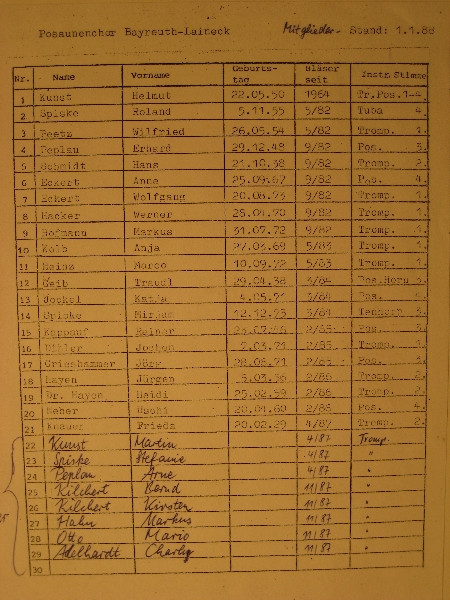 Posaunenchor Bayreuth-Laineck Mitglieder- Stand: 1.1.88
Nr. Name Vorname Geburts- Bläser Instr. Stimme
tag seit
1 Kunst Helmut 22.05.50 1964 Tr.Pos.1-4.
2 Spiske Roland 5.11.55 5/82 Tuba 4.
3 Peetz Wilfried 26.05.54 5/82 Tromp. 1.
4 Peplau Erhard 29.12.48 9/82 Pos. 3.
5 Schmidt Hans 21.10.38 9/82 Tromp. 2.
6 Eckert Anne 25.09.67 9/82 Pos. 4.
7 Eckert Wolfgang 20.08.73 9/82 Tromp. 1.
8 Hacker Werner 28.04.70 9/82 Tromp. 1.
9 Hofmann Markus 31.07.72 9/82 Tromp. 1.
10 Kolb Anja 27.03.69 5/83 Tromp. 1.
11 Heinz Marco 10.09.72 5/83 Tromp. 1.
12 Geib Traudl 29.04.38 3/84 Pos.Horn 3.
13 Jockel Katja 4.05.71 5/84 Pos.
14 Spiske Mirjam 12.12.73 5/84 Tenhorn 3.
15 Rainer 2/85 Pos.
16 Jochen 7.03.71 2/85 Tromp. 1.
17 Grieshammer Jörg 28.05.71 2/85 Pos. 3.
18 Hayen Jürgen 2/86 Tromp. 2.
19 Dr. Hayen Heidi 25.02.59 2/86 Tromp. 2.
20 Weber Uschi 20.01.60 2/86 Pos. 4.
21 Knauer Frieda 20.02.29 4/87 Tromp. 2.
22 Kunst Martin 4/87 Tromp.
23 Spiske Stefanie 4/87 "
24 Peplau Arne 4/87 "
25 Kilchert Bernd 11/87 "
26 Kilchert Kirsten 11/87 "
27 Hahn Markus 11/87 "
28 Otto Mario 11/87 "
29 Adelhardt Charly 11/87 "
30